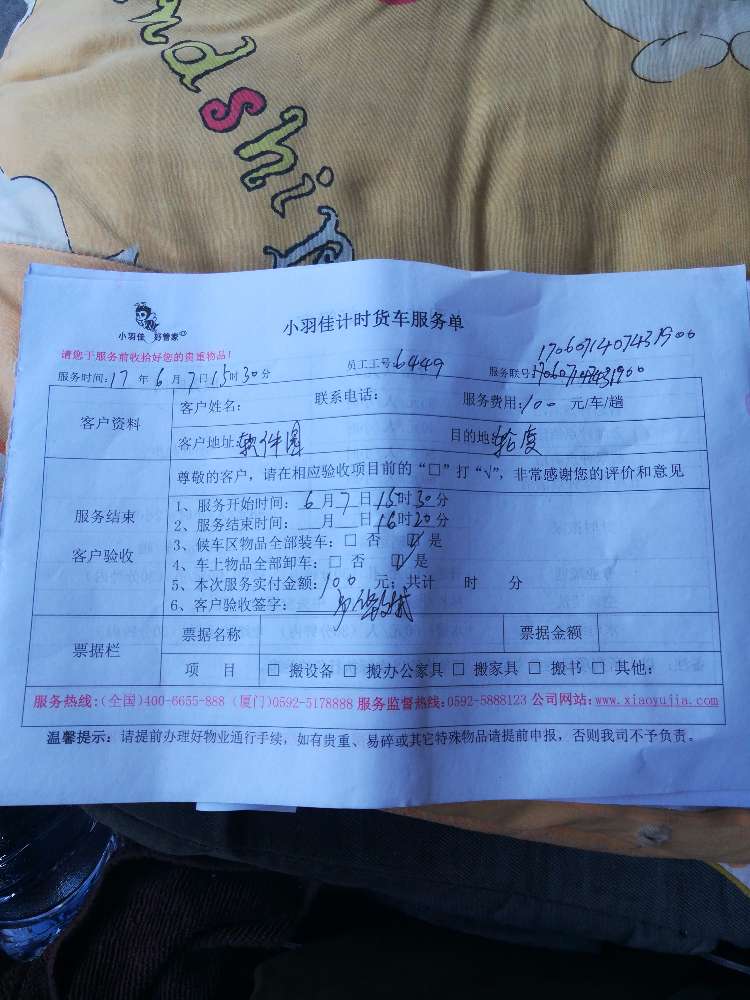 ndship
小羽佳 好管家
小羽佳计时货车服务单
请您于服务前收拾好您的贵重物品!
1706071407431900
服务时间:17年6月7日15时30分 员工工号6449 服务联号:
客户资料 客户姓名: 联系电话: 服务费用:100 元/车/趟
客户地址:软件园 目的地:
尊敬的客户,请在相应验收项目前的“□”打“√”,非常感谢您的评价和意见
服务结束
客户验收
1、服务开始时间:6月7日15时30分
2、服务结束时间:__月__日16时20分
3、候车区物品全部装车:□ 否 ☑ 是
4、车上物品全部卸车:□ 否 ☑ 是
5、本次服务实付金额:100 元;共计 时 分
6、客户验收签字:
票据栏 票据名称 票据金额
项 目 □ 搬设备 □ 搬办公家具 □ 搬家具 □ 搬书 □ 其他:
服务热线:(全国)400-6655-888 (厦门)0592-5178888 服务监督热线:0592-5888123 公司网站:www.xiaoyujia.com
温馨提示:请提前办理好物业通行手续,如有贵重、易碎或其它特殊物品请提前申报,否则我司不予负责。